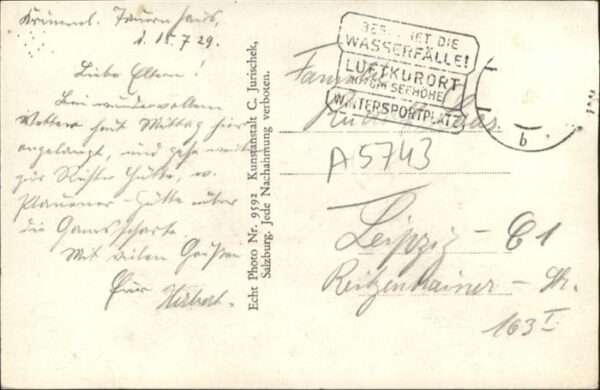 Krimml. Tauernhaus,
d. 15.7.29.
Liebe Eltern!
Bei wundervollem
Wetter heut Mittag hier
angelangt, und gehe weiter
zur Richter Hütte, u.
Plauener-Hütte über
die Gamsscharte.
Mit vielen Grüßen
Euer Herbert.
Echt Photo Nr. 9592 Kunstanstalt C. Jurischek,
Salzburg. Jede Nachahmung verboten.
IST DIE
WASSERFÄLLE!
LUFTKURORT
SEEHÖHE
WINTERSPORTPLATZ
b
A5743
Leipzig - C1
Reitzenhainer-Str.
163 I